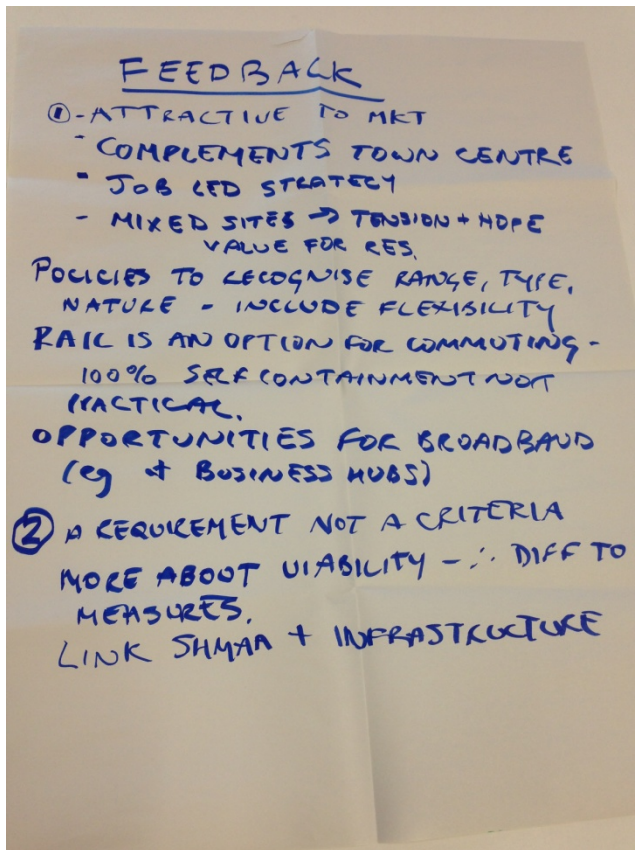 FEEDBACK
① - ATTRACTIVE TO MKT
- COMPLEMENTS TOWN CENTRE
- JOB LED STRATEGY
- MIXED SITES → TENSION + HOPE
VALUE FOR RES.
POLICIES TO RECOGNISE RANGE, TYPE,
NATURE - INCLUDE FLEXIBILITY
RAIL IS AN OPTION FOR COMMUTING -
100% SELF CONTAINMENT NOT
PRACTICAL.
OPPORTUNITIES FOR BROADBAND
(eg + BUSINESS HUBS)
② A REQUIREMENT NOT A CRITERIA
MORE ABOUT VIABILITY - ∴ DIFF TO
MEASURES.
LINK SHMAA + INFRASTRUCTURE